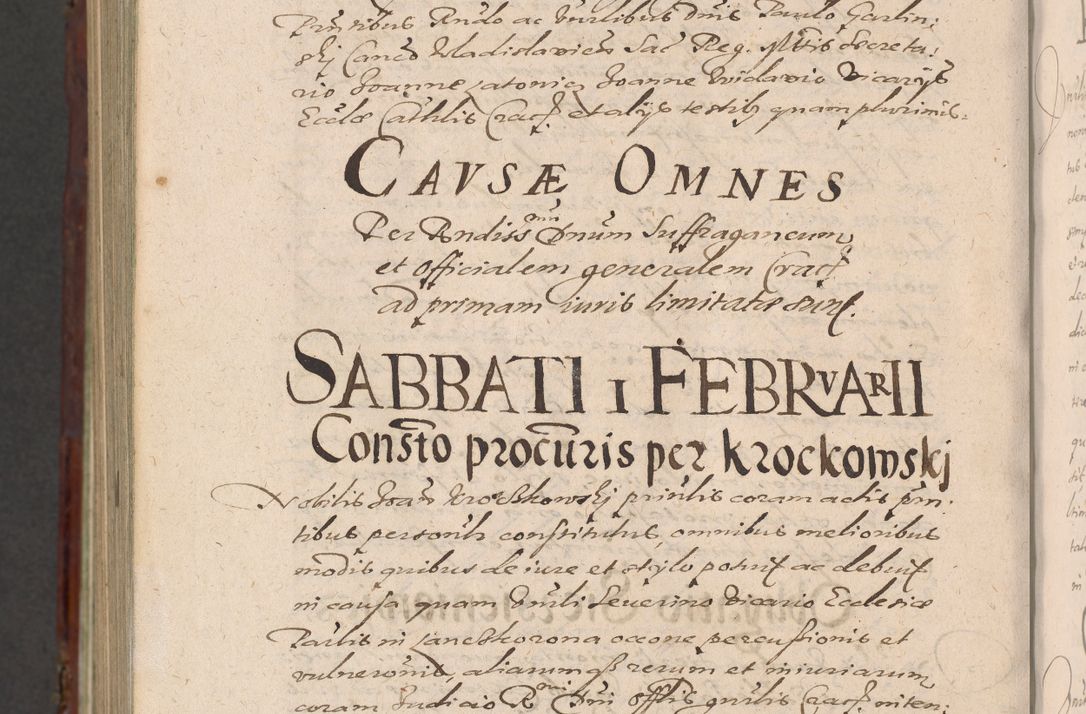 Prntibus Rndo ac Vnrlibus Dnis Paulo Garlin,
skj Canco Vladislavien Sac Reg. Mttis Secreta,
rio Joanne Joanne Vidavio Vicarijs
Ecclae Cathlis Crac. et alijs testib quam plurimis.
CAVSÆ OMNES
Per Rndiss mum Dnum Suffraganeum
et officialem generalem Crac
ad primam iuris limitatæ sunt.
SABBATI 1 FEBRVARII
Consto procuris per Krockowskj
Nobilis Joan Krockowskj prinlis coram actis prn,
tibus personlr constitutus, omnibus melioribus
modis quibus de iure et stylo potuit ac debuit
in causa quam Vnrli Severino Vicario Ecclesiæ
Paulis in percussionis et
vulneronis, aliarumq rerum et iniuriarum
coram Judicio R mi Dni Offlis gnrlis Crac. inten,